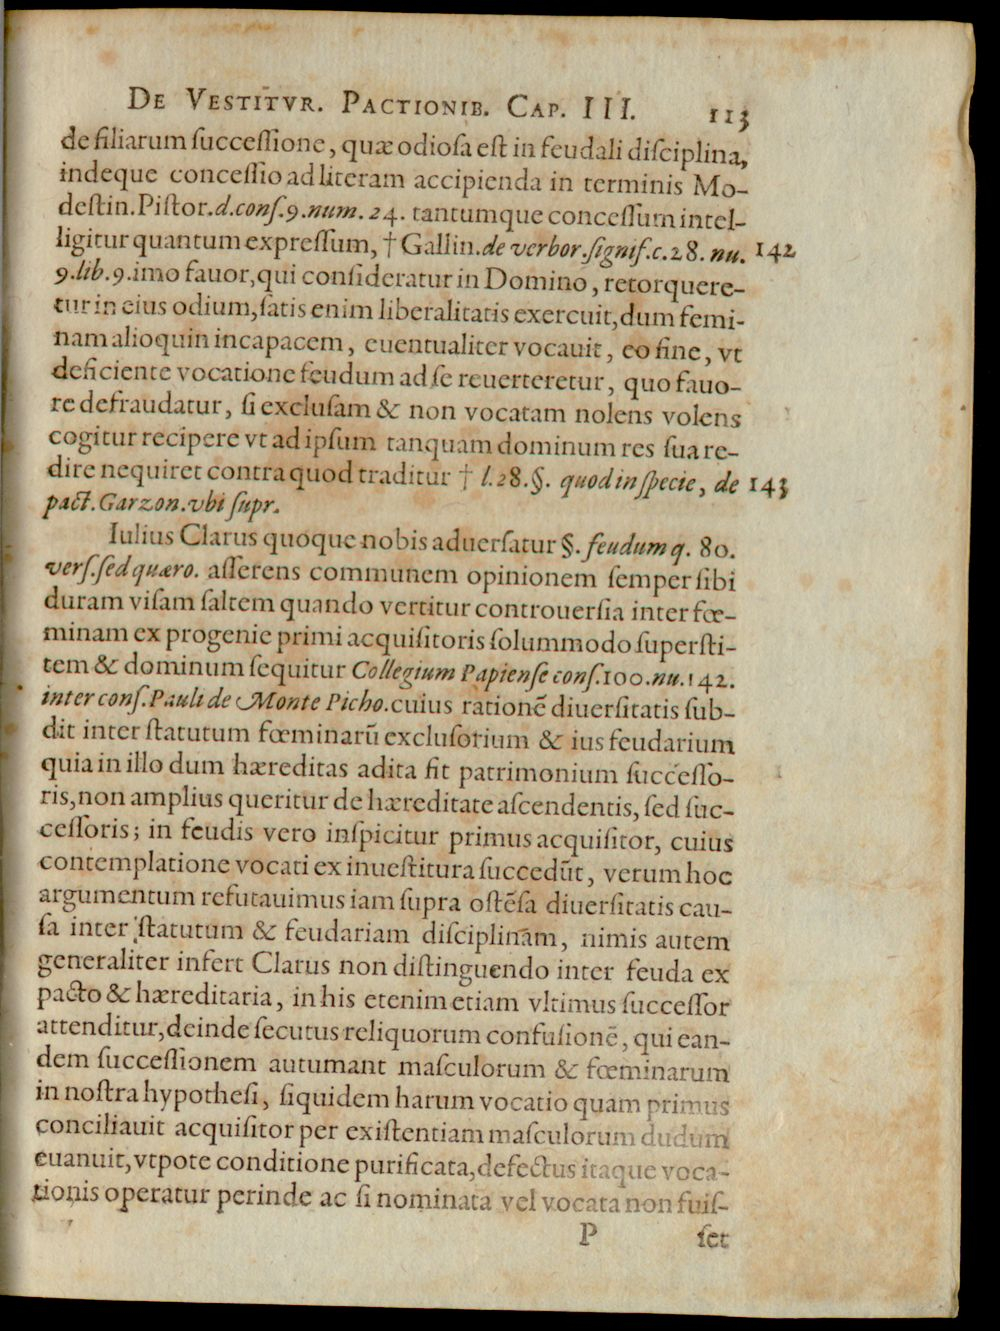 De Vestitvr. Pactionib. Cap. III. 113
de filiarum ſucceſſione, quæ odioſa eſt in feudali diſciplina,
indeque conceſſio ad literam accipienda in terminis Mo-
deſtin. Piſtor. d. conſ. 9. num. 24. tantumque conceſſum intel-
ligitur quantum expreſſum, † Gallin. de verbor. ſignif. c. 28. nu. 142
9. lib. 9. imo fauor, qui conſideratur in Domino, retorquere-
tur in eius odium, ſatis enim liberalitatis exercuit, dum femi-
nam alioquin incapacem, euentualiter vocauit, eo fine, vt
deficiente vocatione feudum ad ſe reuerteretur, quo fauo-
re defraudatur, ſi excluſam & non vocatam nolens volens
cogitur recipere vt ad ipſum tanquam dominum res ſua re-
dire nequiret contra quod traditur † l. 28. §. quod in ſpecie, de 143
pact. Garzon. vbi ſupr.
Iulius Clarus quoque nobis aduerſatur §. feudum q. 80.
verſ. ſed quæro. aſſerens communem opinionem ſemper ſibi
duram viſam ſaltem quando vertitur controuerſia inter fœ-
minam ex progenie primi acquiſitoris ſolummodo ſuperſti-
tem & dominum ſequitur Collegium Papienſe conſ. 100. nu. 142.
inter conſ. Pauli de Monte Picho. cuius rationē diuerſitatis ſub-
dit inter ſtatutum fœminarū excluſorium & ius feudarium
quia in illo dum hæreditas adita fit patrimonium ſucceſſo-
ris, non amplius queritur de hæreditate aſcendentis, ſed ſuc-
ceſſoris; in feudis vero inſpicitur primus acquiſitor, cuius
contemplatione vocati ex inueſtitura ſuccedūt, verum hoc
argumentum refutauimus iam ſupra oſtēſa diuerſitatis cau-
ſa inter ſtatutum & feudariam diſciplinam, nimis autem
generaliter infert Clarus non diſtinguendo inter feuda ex
pacto & hæreditaria, in his etenim etiam vltimus ſucceſſor
attenditur, deinde ſecutus reliquorum confuſionē, qui ean-
dem ſucceſſionem autumant maſculorum & fœminarum
in noſtra hypotheſi, ſiquidem harum vocatio quam primus
conciliauit acquiſitor per exiſtentiam maſculorum dudum
euanuit, vtpote conditione purificata, defectus itaque voca-
tionis operatur perinde ac ſi nominata vel vocata non fuiſ-
P ſet